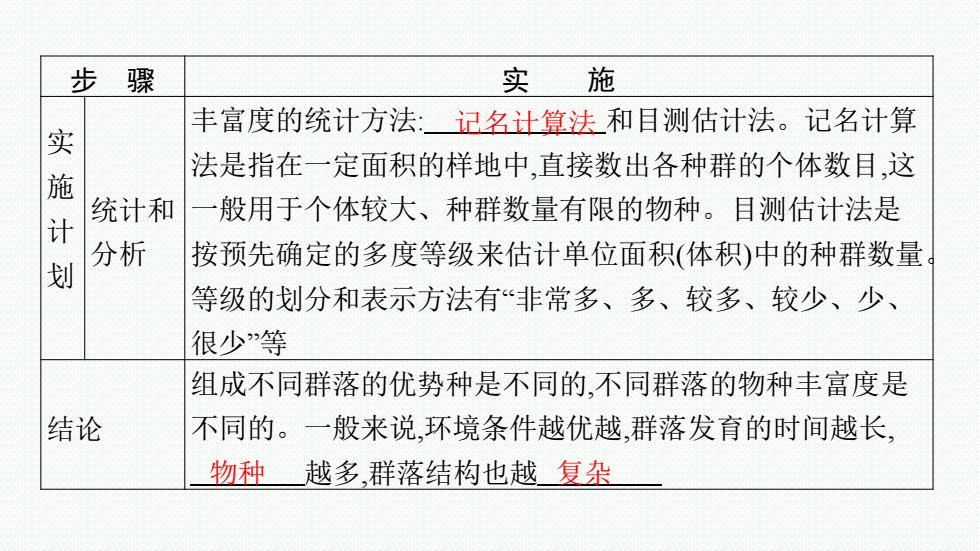 步　骤
实　　施
实施计划
统计和分析
丰富度的统计方法:　记名计算法 和目测估计法。记名计算
法是指在一定面积的样地中,直接数出各种群的个体数目,这
一般用于个体较大、种群数量有限的物种。目测估计法是
按预先确定的多度等级来估计单位面积(体积)中的种群数量。
等级的划分和表示方法有“非常多、多、较多、较少、少、
很少”等
结论
组成不同群落的优势种是不同的,不同群落的物种丰富度是
不同的。一般来说,环境条件越优越,群落发育的时间越长,
物种　越多,群落结构也越 复杂